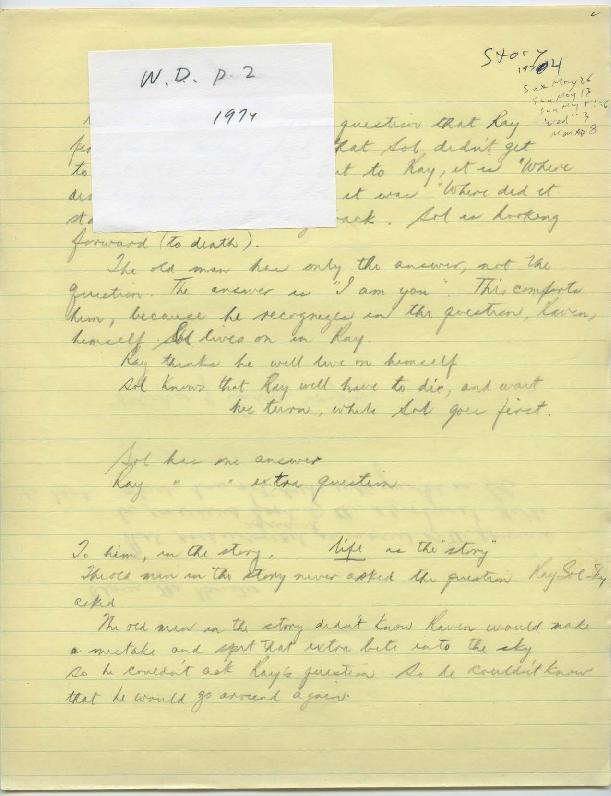 Story
1974
Sat May 26
Wed 3
Mon Ap 8
W.D. p. 2
1974
question that Ray
that Sol didn't get
to Ray, it is "Where
it was "Where did it
back. Sol is looking
forward (to death).
The old man has only the answer, not the
question. The answer is "I am you". This comforts
him, because he recognizes in the question, Raven,
himself. Sol lives on in Ray.
Ray thinks he will live on himself
Sol knows that Ray will have to die, and wait
his turn, while Sol goes first.
Sol has one answer
Ray " " extra question
To him, in the story. Life is the "story"
The old man in the story never asked the question Ray Sol
asked
The old man in the story didn't know Raven would make
a mistake and spit that extra bite into the sky
so he couldn't ask Ray's question. So he couldn't know
that he would go around again